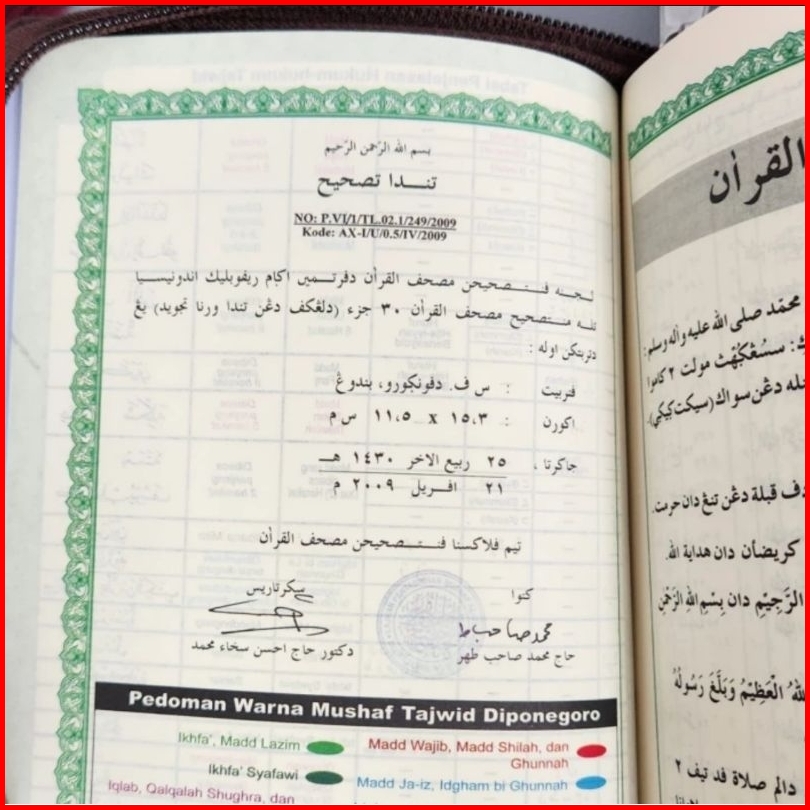 بسم الله الرّحمن الرّحيم
تنــدا تصحيح
NO: P.VI/1/TL.02.1/249/2009
Kode: AX-I/U/0.5/IV/2009
لجنه فنتصحيحن مصحف القرأن دفرتمين اݢام ريفوبليك اندونيسيا
تله منتصحيح مصحف القرأن ٣٠ جزء (دلڠكف دڠن تندا ورنا تجويد) يڠ
دتربتكن اوله :
فنربيت : س ف. دفونݢورو، بندوڠ
اكورن : ١٥،٣ x ١١،٥ س م
جاكرتا ، ٢٥ ربيع الاخر ١٤٣٠ هـ
٢١ افريل ٢٠٠٩ م
تيم فلاكسنا فنتصحيحن مصحف القرأن
كتوا
سكرتاريس
حاج محمد صاحب طهر
دكتور حاج احسن سخاء محمد
Pedoman Warna Mushaf Tajwid Diponegoro
Ikhfa', Madd Lazim
Madd Wajib, Madd Shilah, dan
Ghunnah
Ikhfa' Syafawi
Madd Ja-iz, Idgham bi Ghunnah
Iqlab, Qalqalah Shughra, dan
القرأن
محمّد صلى الله عليه وأله وسلم :
مولت ٢ كاموا
دڠن سواك (سيكت كيكي).
ف قبلة دڠن تنڠ دان حرمت.
كريضأن دان هداية الله.
الرَّجِيْمِ دان بِسْمِ اللهِ الرَّحْمٰنِ
اللهُ الْعَظِيْمُ وَبَلَّغَ رَسُولُهُ
دالم صلاة فد تيف ٢